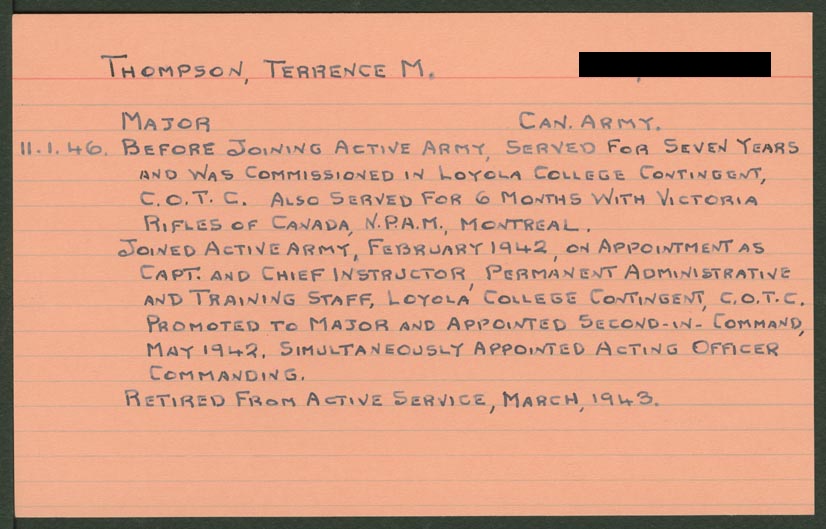 THOMPSON, TERRENCE M.
MAJOR CAN. ARMY.
11.1.46. BEFORE JOINING ACTIVE ARMY, SERVED FOR SEVEN YEARS
AND WAS COMMISSIONED IN LOYOLA COLLEGE CONTINGENT,
C.O.T.C. ALSO SERVED FOR 6 MONTHS WITH VICTORIA
RIFLES OF CANADA, N.P.A.M., MONTREAL.
JOINED ACTIVE ARMY, FEBRUARY 1942, ON APPOINTMENT AS
CAPT. AND CHIEF INSTRUCTOR, PERMANENT ADMINISTRATIVE
AND TRAINING STAFF, LOYOLA COLLEGE CONTINGENT, C.O.T.C.
PROMOTED TO MAJOR AND APPOINTED SECOND-IN-COMMAND,
MAY 1942. SIMULTANEOUSLY APPOINTED ACTING OFFICER
COMMANDING.
RETIRED FROM ACTIVE SERVICE, MARCH, 1943.